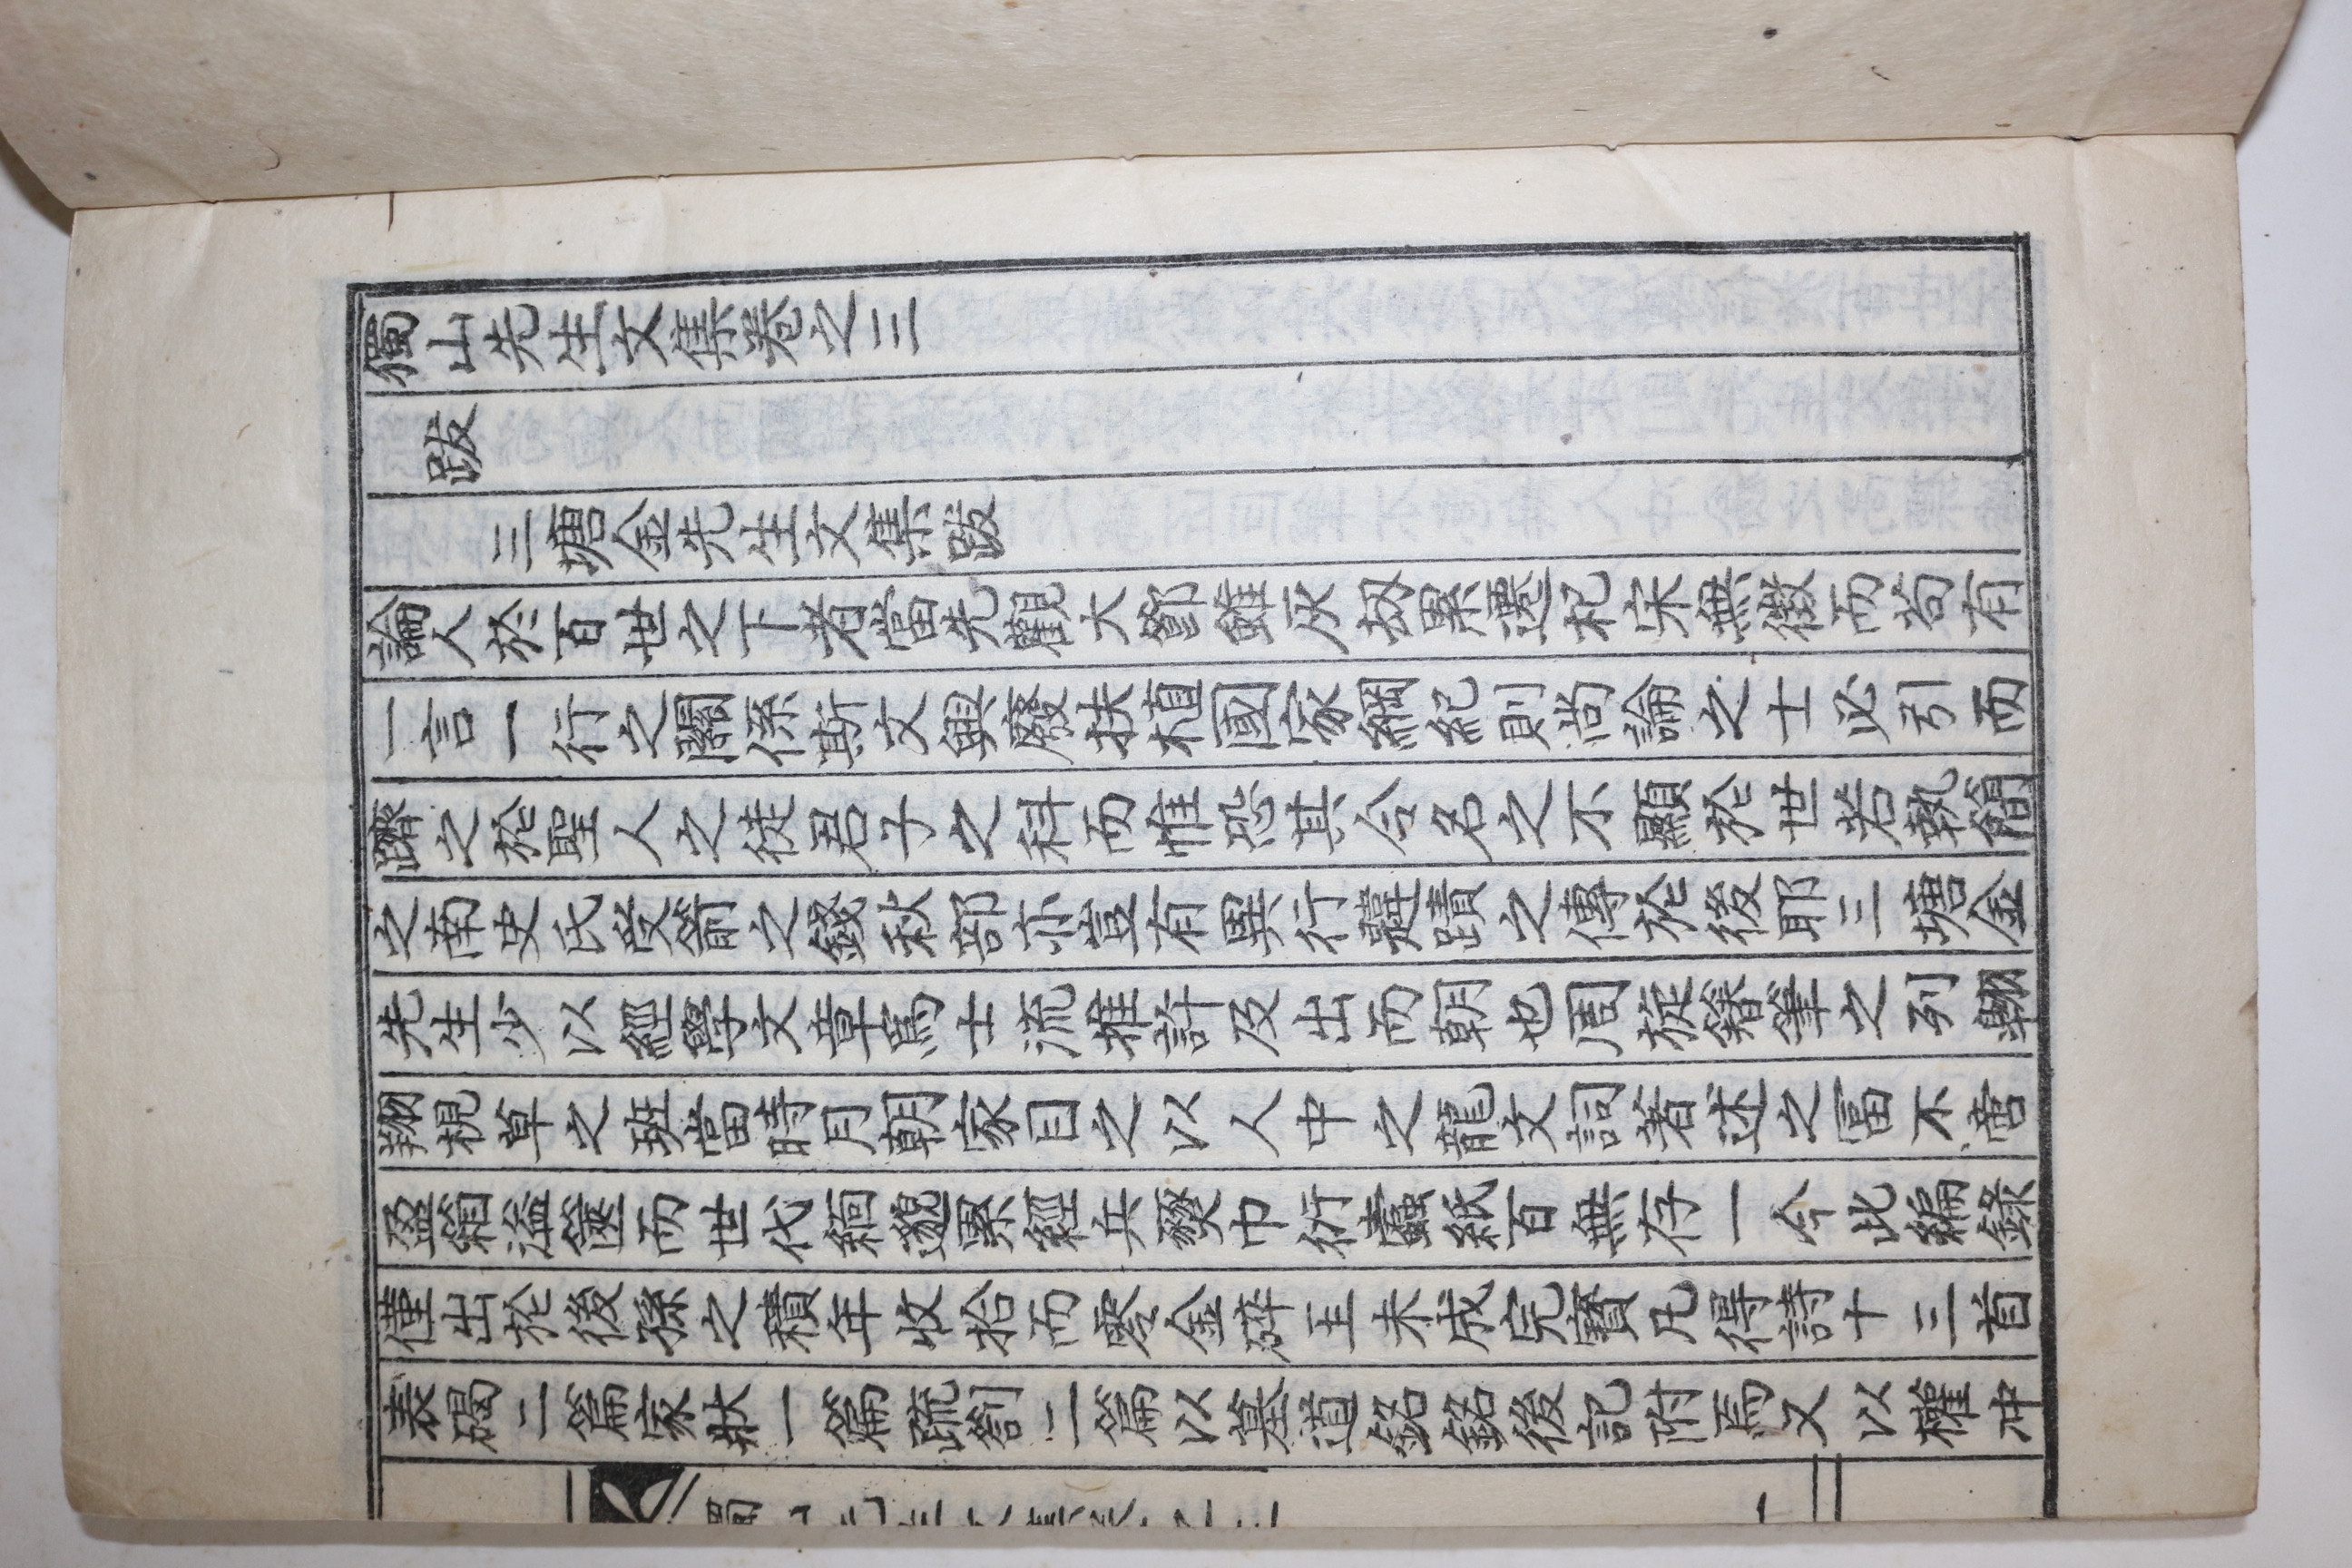 獨山先生文集卷之三
跋
三塘金先生文集跋
論人於百世之下者當先觀大節雖灰刼累遷杞宋無徵而苟有
一言一行之關係斯文興廢扶植國家綱紀則尚論之士必引而
躋之於聖人之徒君子之科而惟恐其令名之不顯於世若執簡
之南史氏受箭之錢秋部亦豈有異行韙蹟之傳於後耶三塘金
先生少以經學文章爲士流推許及出而朝也周旋簪筆之列翺
翔視草之班當時月朝家目之以人中之龍文詞著述之富不啻
盈箱溢篋而世代緬邈累經兵燹巾衍蠹紙百無存一今此編錄
僅出於後孫之積年收拾而零金碎玉未成完寶凡得詩十三首
表碣二篇家狀一篇疏劄二篇以墓道銘銘後記附焉又以權冲
獨山先生文集卷之三 一